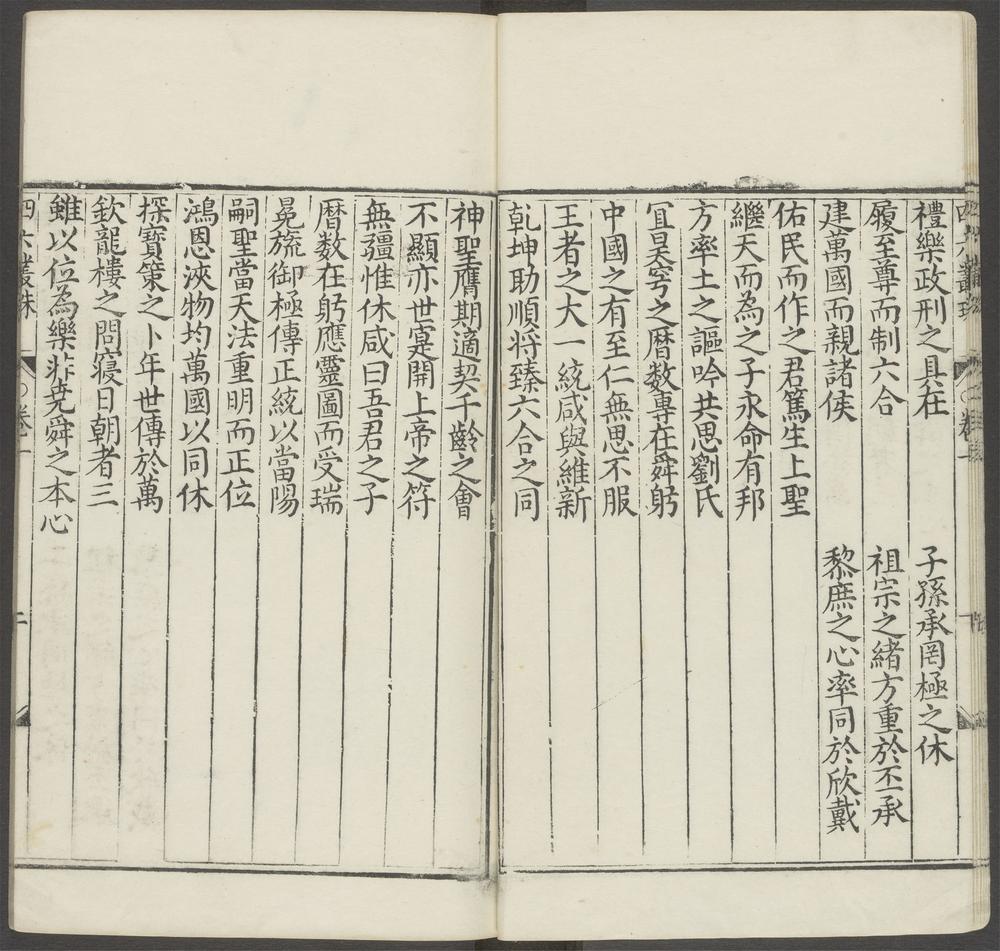 禮樂政刑之具在 子孫承罔極之休
履至尊而制六合 祖宗之緒方重於丕承
建萬國而親諸侯 黎庶之心率同於欣戴
佑民而作之君篤生上聖
繼天而為之子永命有邦
方率土之謳吟共思劉氏
冝昊穹之曆数專在舜躬
中國之有至仁無思不服
王者之大一統咸與維新
乾坤助順将臻六合之同
神聖膺期適契千齡之會
不顯亦世寔開上帝之符
無彊惟休咸曰吾君之子
曆数在躬應靈圖而受瑞
冕旒御極傳正統以當陽
嗣聖當天法重明而正位
鴻恩浹物均萬國以同休
探寳策之卜年世傳於萬
欽龍樓之問寢日朝者三
雖以位為樂非尭舜之本心
四六叢珠 卷一 二